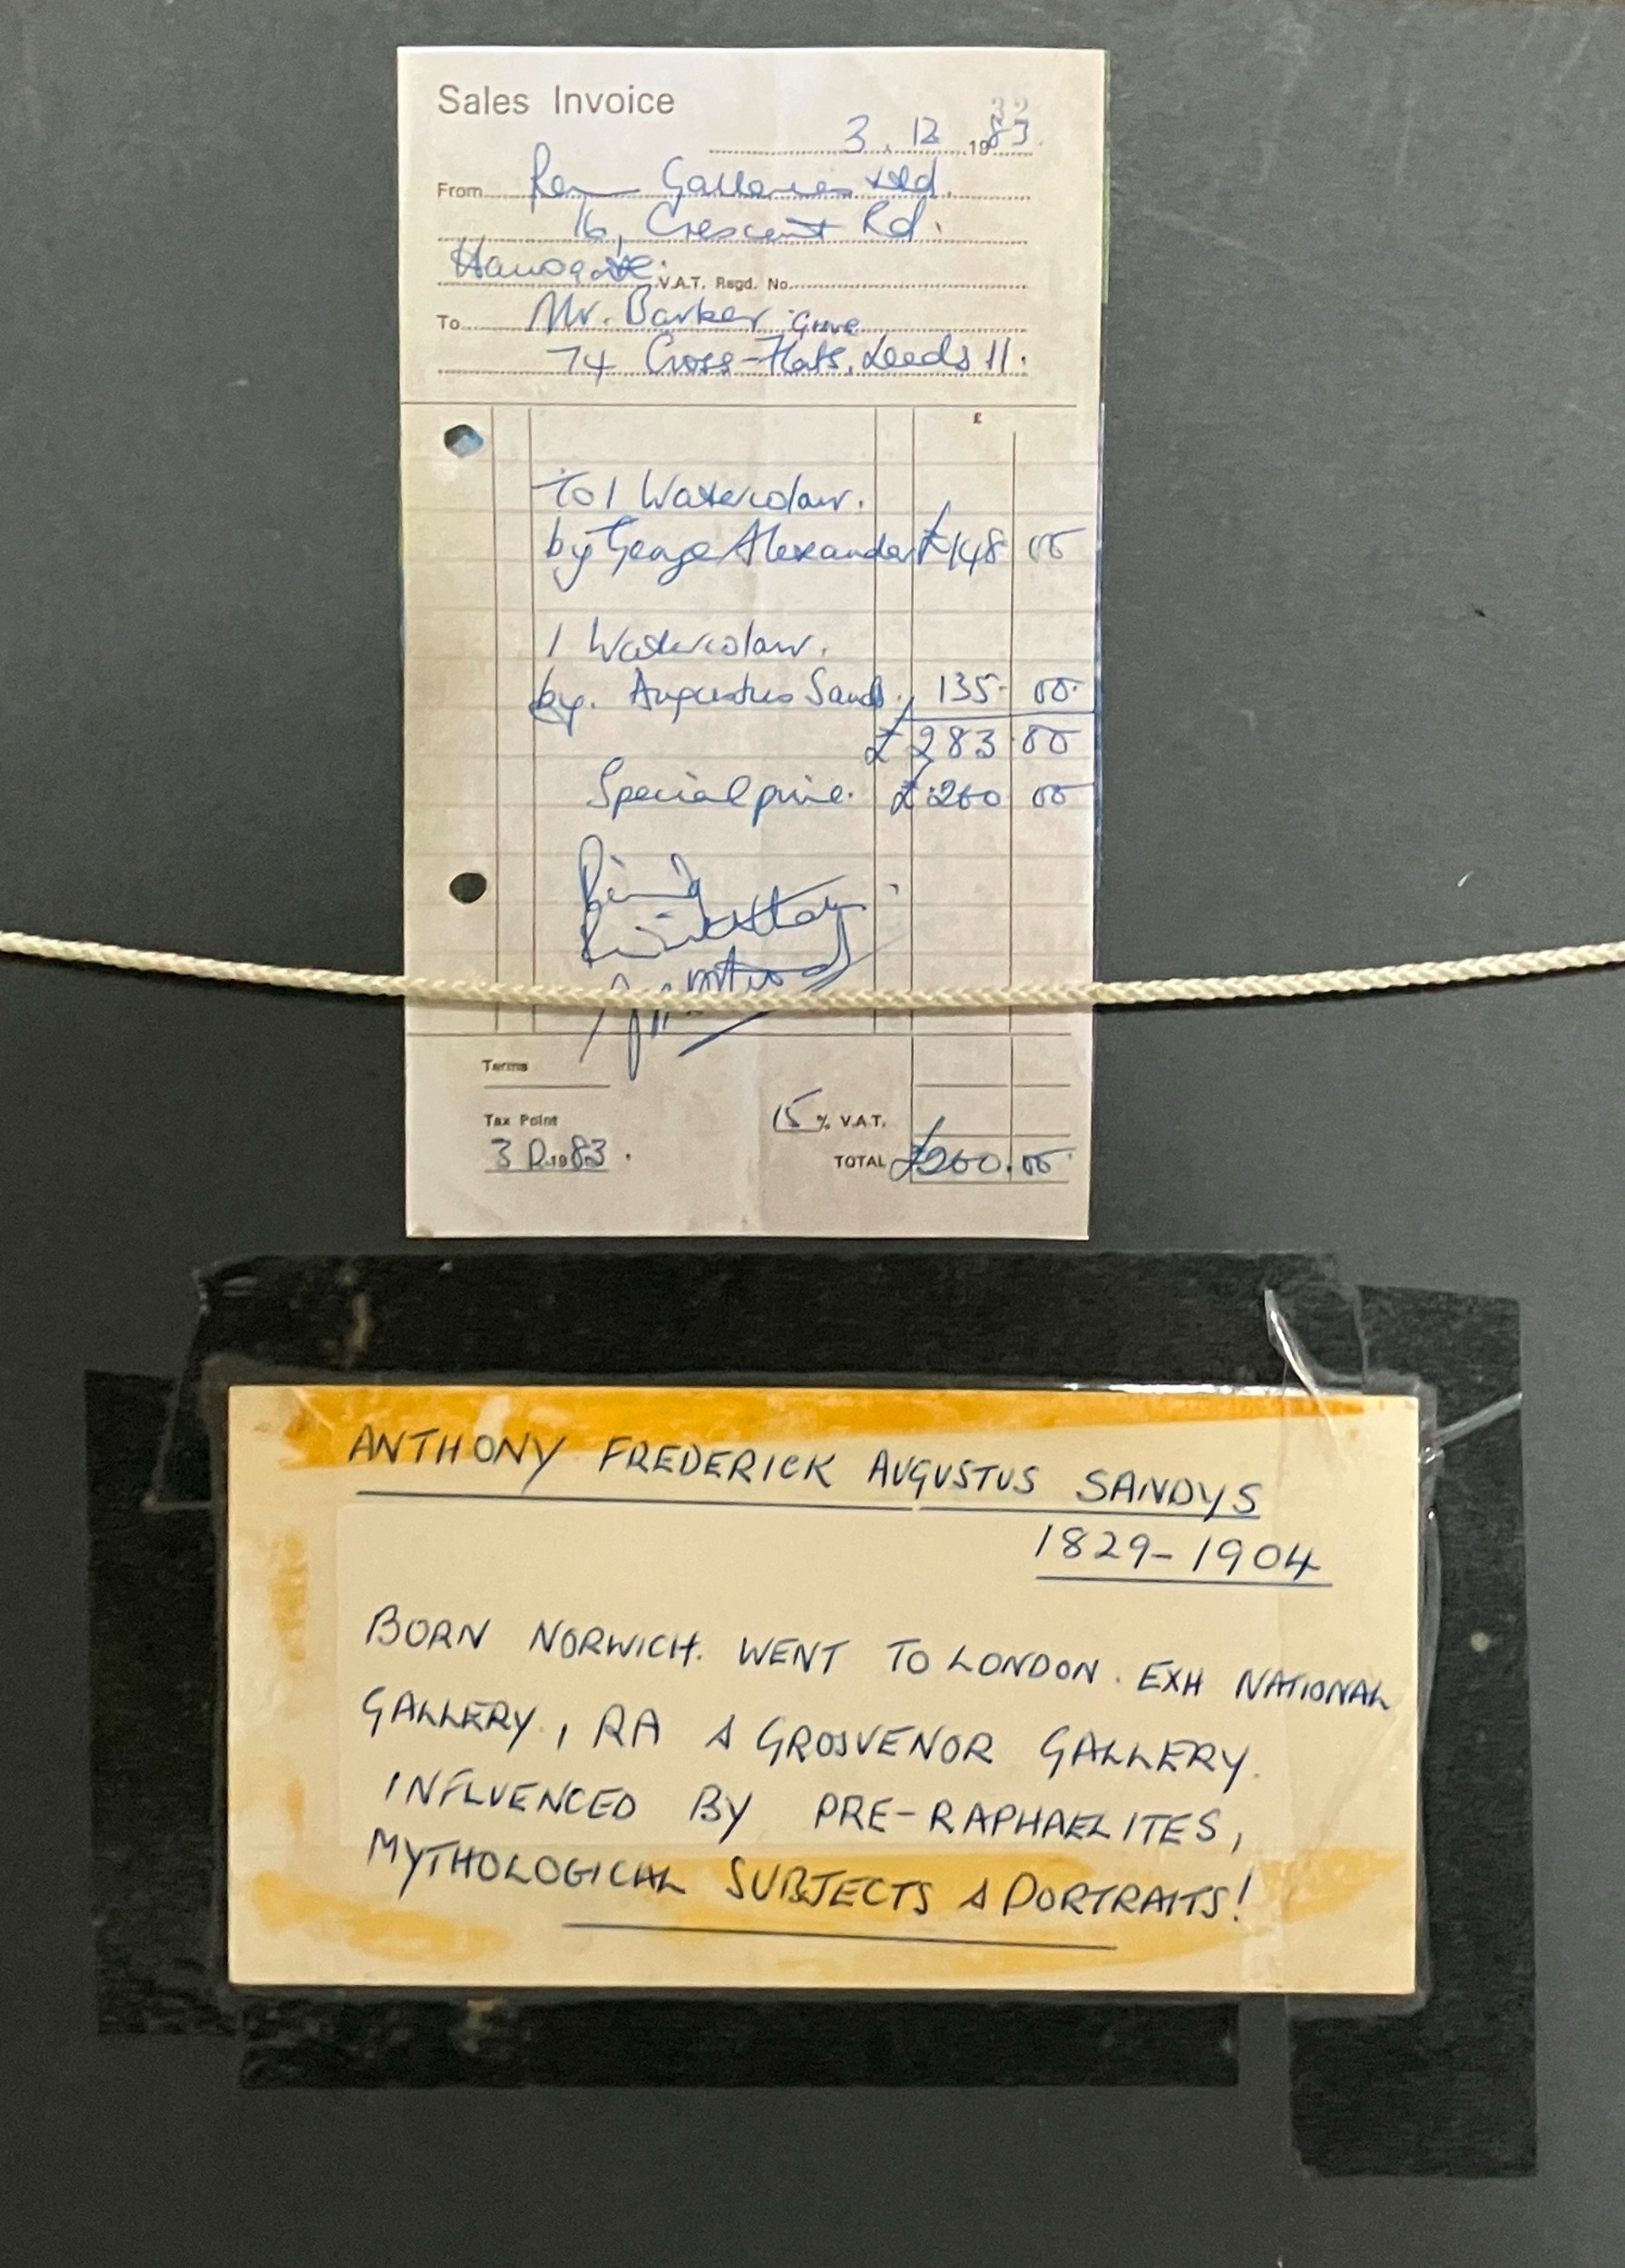 Sales Invoice
3. 12 1983.
From
16, Crescent Rd.
Harrogate. V.A.T. Regd. No.
To Mr. Barker Grove
74 Cross-Flats, Leeds 11.
£
To 1 Watercolour.
by George Alexander £148 00
1 Watercolour.
by. Augustus Sands. 135- 00.
£283.00
Special price. £260 00
Terms
Tax Point 15 % V.A.T.
3 D. 1983. TOTAL £260.00
ANTHONY FREDERICK AUGUSTUS SANDYS
1829-1904
BORN NORWICH. WENT TO LONDON. EXH NATIONAL
GALLERY, RA & GROSVENOR GALLERY.
INFLUENCED BY PRE-RAPHAELITES,
MYTHOLOGICAL SUBJECTS & PORTRAITS!